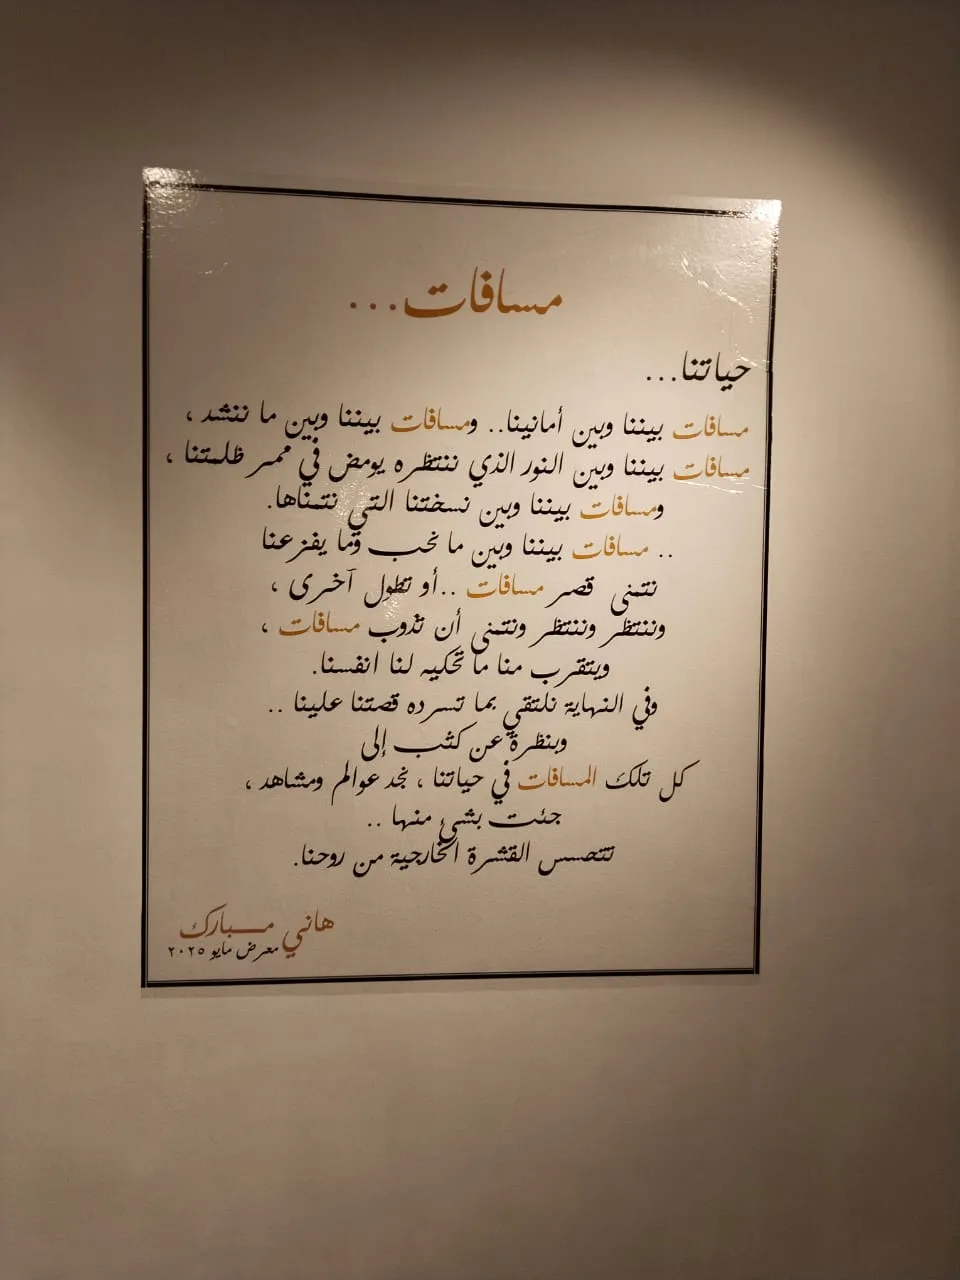 مسافات...
حياتنا...
مسافات بيننا وبين أمانينا.. ومسافات بيننا وبين ما ننشد ،
مسافات بيننا وبين النور الذي ننتظره يومض في ممر ظلمتنا ،
ومسافات بيننا وبين نسختنا التي نتمناها.
.. مسافات بيننا وبين ما نحب وما يفزعنا
نتمنى قصر مسافات ..أو تطول آخرى ،
وننتظر وننتظر ونتمنى أن تذوب مسافات ،
ويتقرب منا ما تحكيه لنا انفسنا.
وفي النهاية نلتقي بما تسرده قصتنا علينا ..
وبنظرة عن كثب إلى
كل تلك المسافات في حياتنا ، نجد عوالم ومشاهد ،
جئت بشئ منها ..
تتحسس القشرة الخارجية من روحنا.
هاني مبارك
معرض مايو ٢٠٢٥